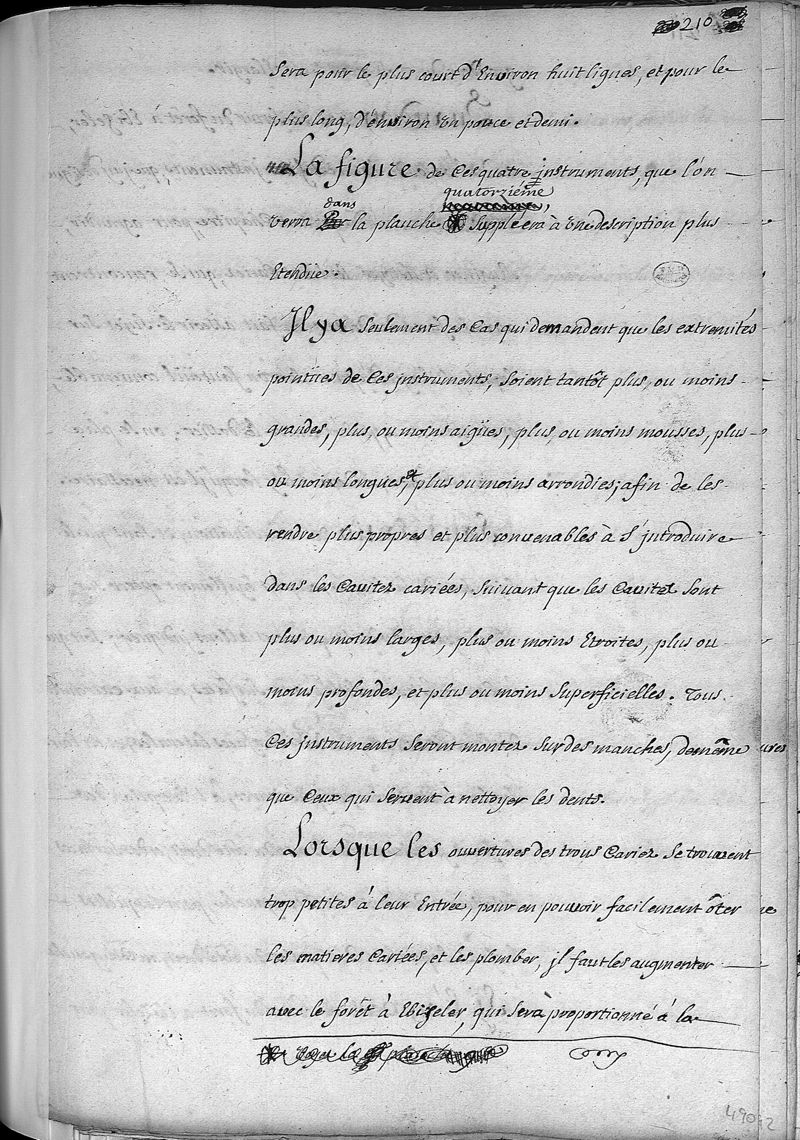 210
Sera pour le plus court d'Environ huit lignes, et pour le
plus long, d'environ Un pouce et demi.
La figure de Ces quatre jnstruments, que l'on
quatorziéme
dans
verra la planche Suppléera à Une description plus
Etendüe.
Jl y a Seulement des Cas qui demandent que les extremités
pointües de Ces jnstruments, Soient tantôt plus, ou moins
grandes, plus, ou moins aigües, plus, ou moins mousses, plus
ou moins longues, et plus ou moins arrondies; afin de les
rendre plus propres et plus convenables à S'jntroduire
dans les Cavitez cariées, Suivant que les Cavitez Sont
plus ou moins larges, plus ou moins Etroites, plus ou
moins profondes, et plus ou moins Superficielles. Tous
Ces jnstruments Seront montez Sur des manches, demême
que Ceux qui Servent à nettoyer les dents.
Lorsque les ouvertures des trous Cariez Se trouvent
trop petites à leur Entrée, pour en pouvoir facilement ôter
les matieres Cariées, et les plomber, jl faut les augmenter
avec le forêt à Ebizeler, qui Sera proportionné à la
490
2